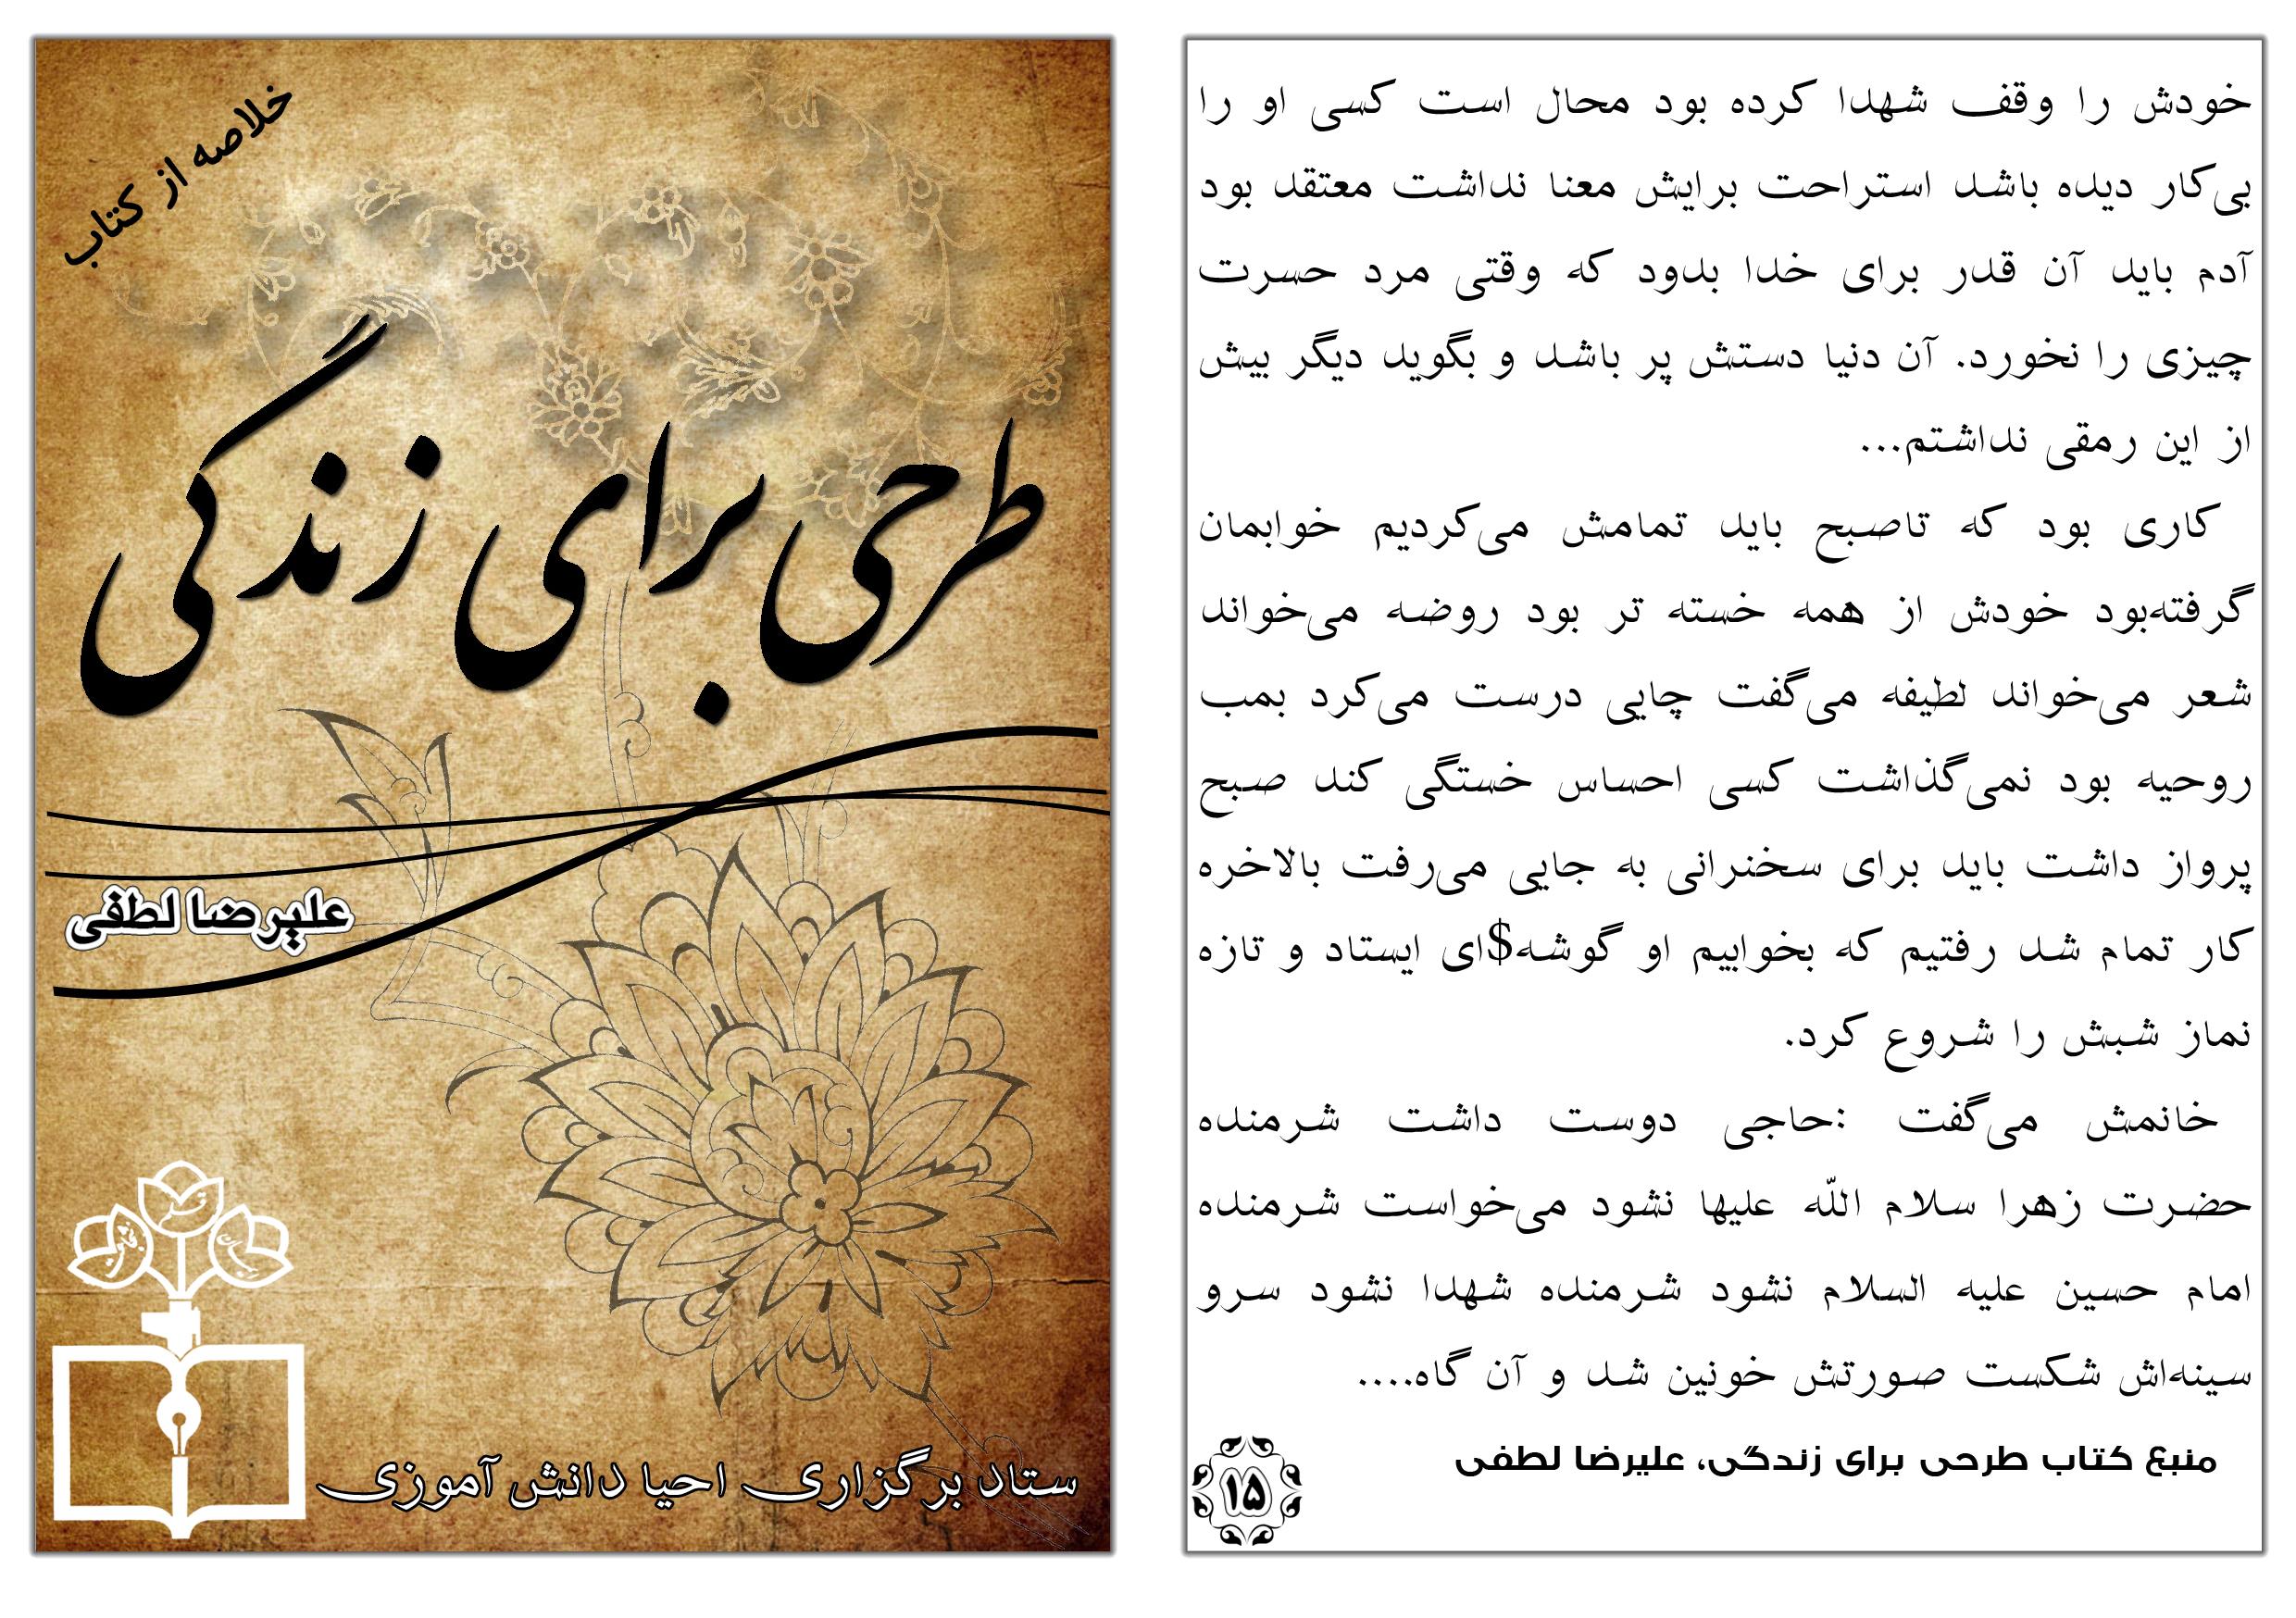 خلاصه از کتاب
طرحی برای زندگی
علیرضا لطفی
ستاد برگزاری احیا دانش آموزی
خودش را وقف شهدا کرده بود محال است کسی او را
بی‌کار دیده باشد استراحت برایش معنا نداشت معتقد بود
آدم باید آن قدر برای خدا بدود که وقتی مرد حسرت
چیزی را نخورد. آن دنیا دستش پر باشد و بگوید دیگر بیش
از این رمقی نداشتم...
کاری بود که تاصبح باید تمامش می‌کردیم خوابمان
گرفته‌بود خودش از همه خسته تر بود روضه می‌خواند
شعر می‌خواند لطیفه می‌گفت چایی درست می‌کرد بمب
روحیه بود نمی‌گذاشت کسی احساس خستگی کند صبح
پرواز داشت باید برای سخنرانی به جایی می‌رفت بالاخره
کار تمام شد رفتیم که بخوابیم او گوشه$ای ایستاد و تازه
نماز شبش را شروع کرد.
خانمش می‌گفت :حاجی دوست داشت شرمنده
حضرت زهرا سلام اللّه علیها نشود می‌خواست شرمنده
امام حسین علیه السلام نشود شرمنده شهدا نشود سرو
سینه‌اش شکست صورتش خونین شد و آن گاه....
منبع کتاب طرحی برای زندگی، علیرضا لطفی
۱۵